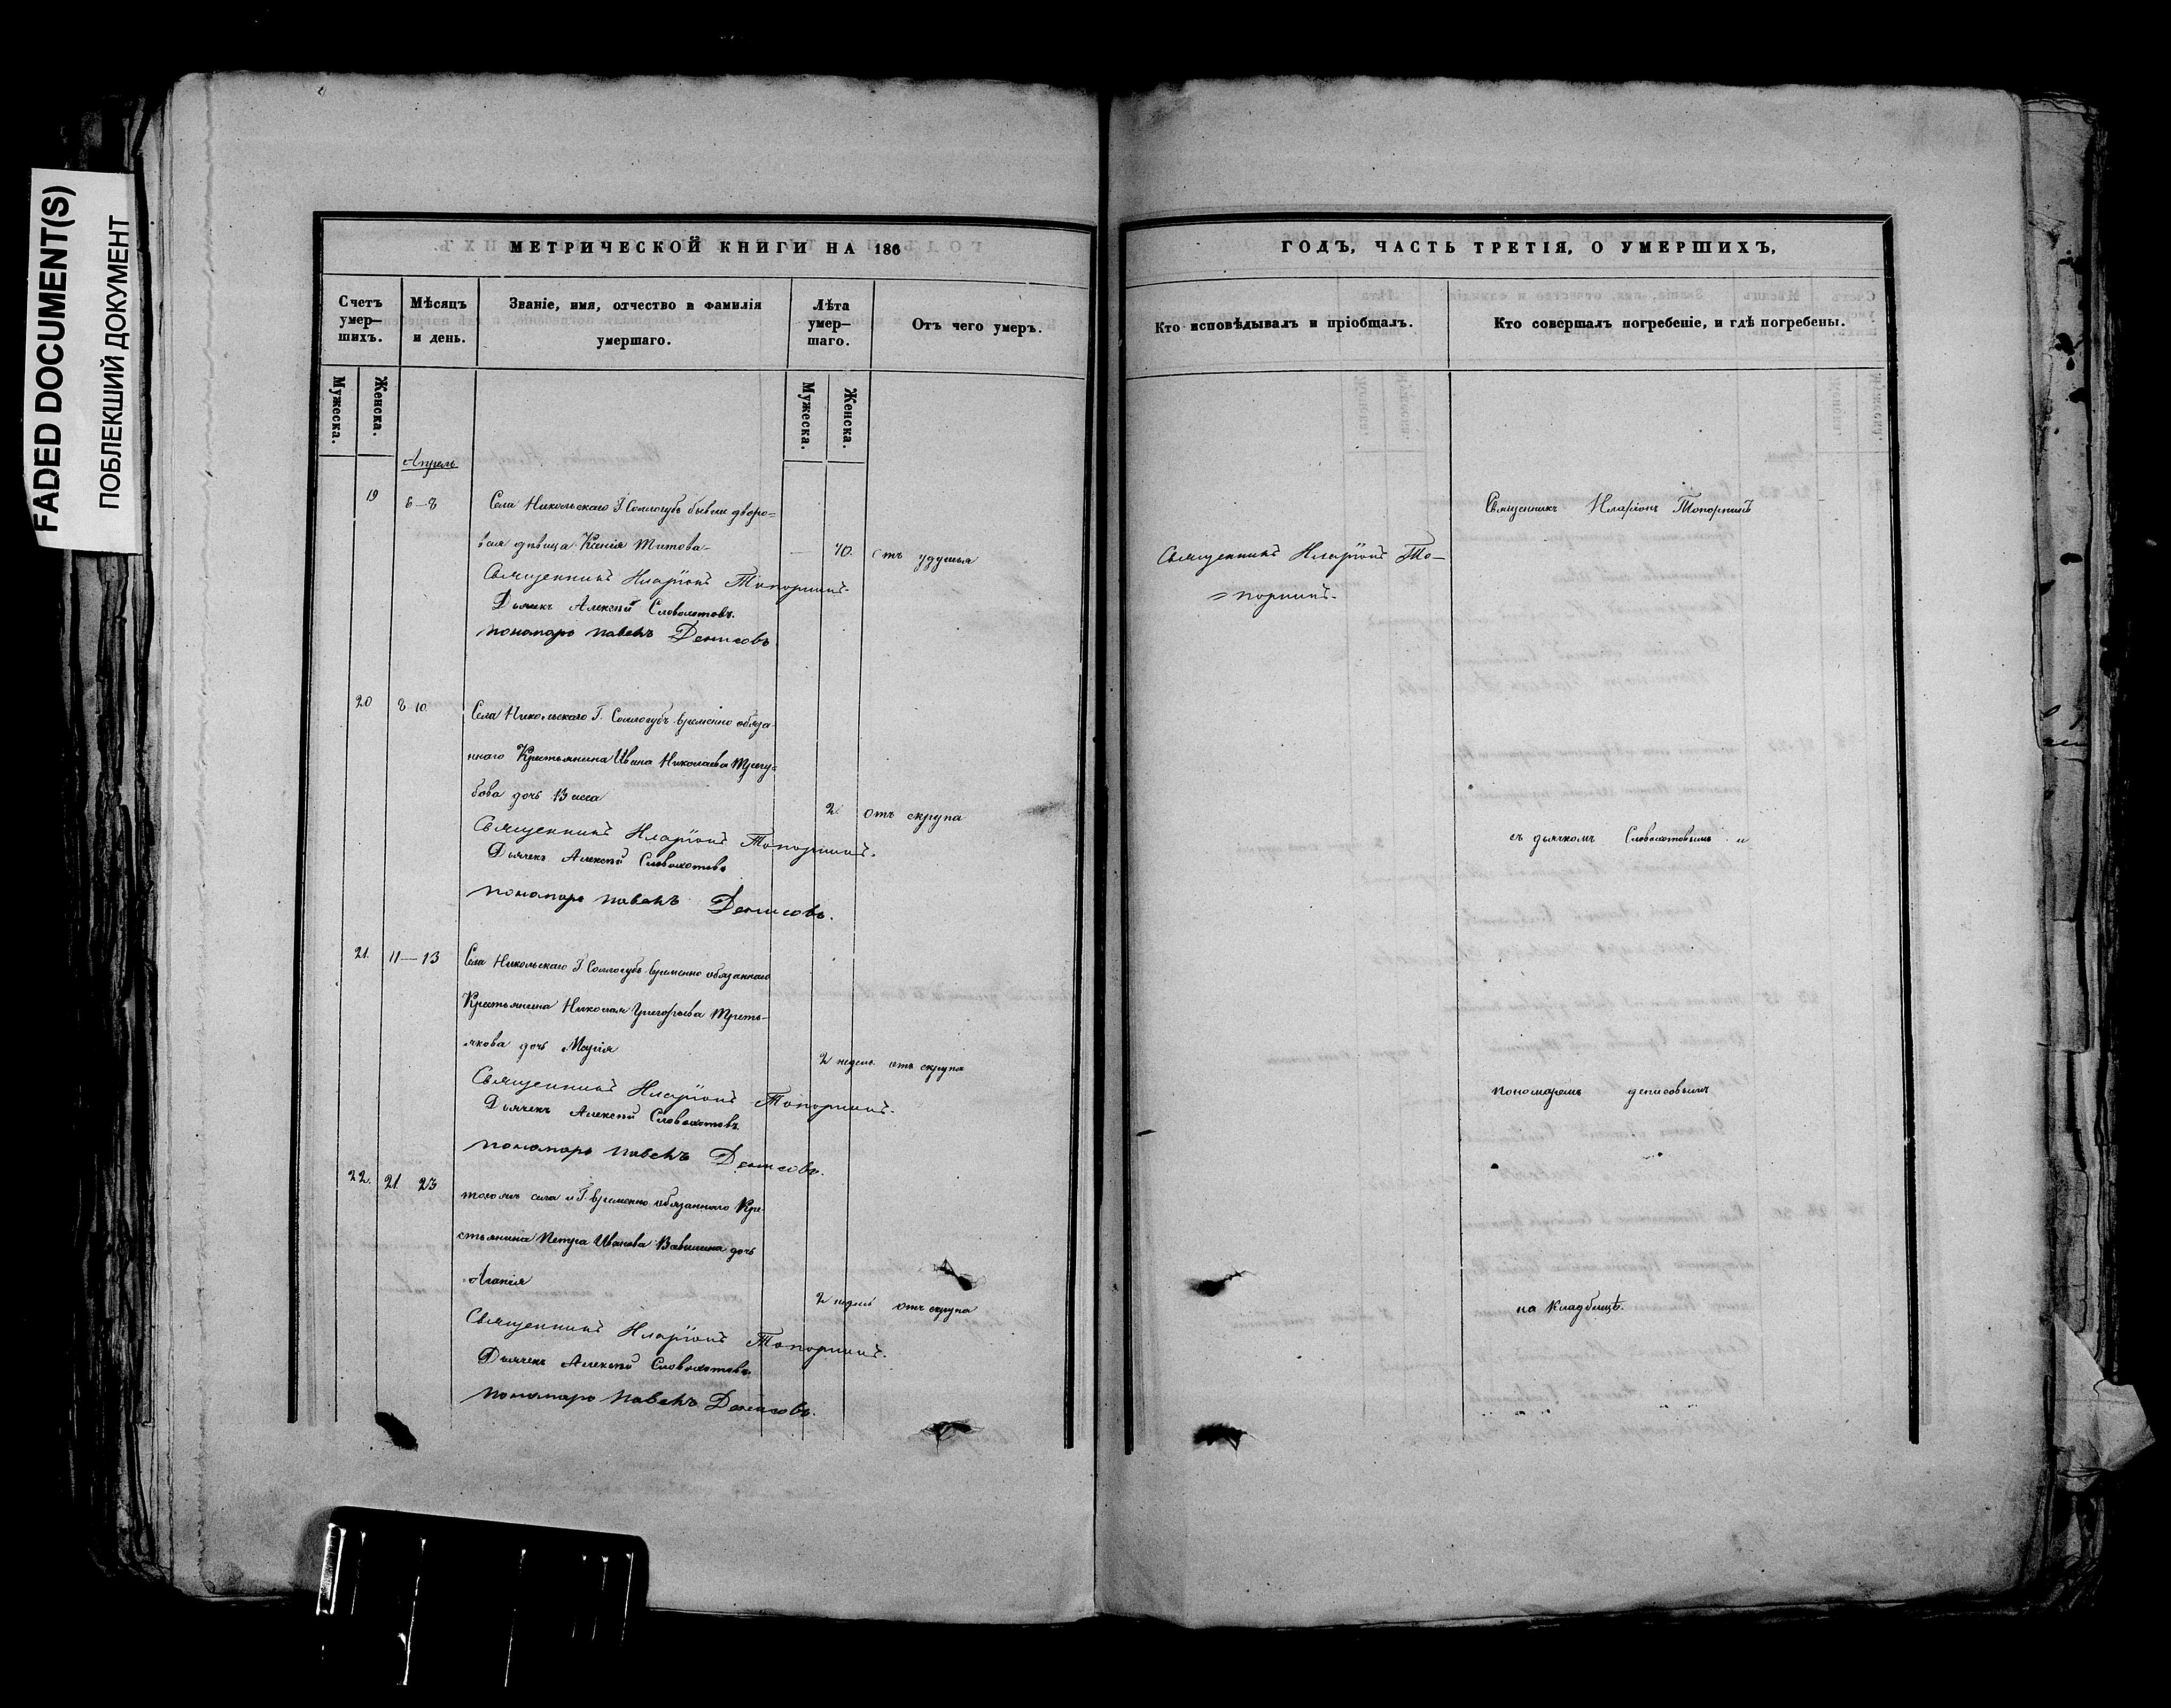 FADED DOCUMENT(S)
ПОБЛЕКШИЙ ДОКУМЕНТ
МЕТРИЧЕСКОЙ КНИГИ НА 186
Счетъ умер—шихъ.
Мѣсяцъ и день.
Званіе, имя, отчество и фамилія
умершаго.
Лѣта умер—шаго.
Отъ чего умеръ.
Мужеска.
Женска.
Мужеска.
Женска.
Апрель
19 6—8 Села Никольскаго Г. Соллогубъ бывши дворо=
вая дѣвица Ксенія Титова 70. отъ удушья
Священникъ Иларіонъ Топорнинъ.
Дьячекъ Алексей Словохотовъ.
пономарь павелъ Денисовъ
20 8 10 Села Никольскаго Г. Соллогубъ временно обяза
ннаго Крестьянина Ивана Николаева
бова дочь Васса 2. отъ скрупа
Священникъ Иларіонъ Топорнинъ.
Дьячекъ Алексей Словохотовъ
пономарь павелъ Денисовъ.
21. 11—13 Села Никольскаго Г. Соллогубъ временно обязаннаго
Крестьянина Николая Григорьева Треть-
якова дочь Марія 2 недель отъ скрупа
Священникъ Иларіонъ Топорнинъ.
Дьячекъ Алексей Словохотовъ.
пономарь павелъ Денисовъ.
22. 21 23 тогожъ села и Г. временно обязаннаго Кре
стьянина Петра Иванова Вавилина дочь
Агапія 2 недель отъ скрупа
Священникъ Иларіонъ Топорнинъ.
Дьячекъ Алексей Словохотовъ
пономарь павелъ Денисовъ.
ГОДЪ, ЧАСТЬ ТРЕТІЯ, О УМЕРШИХЪ,
Кто исповѣдывалъ и пріобщалъ.
Кто совершалъ погребеніе, и гдѣ погребены.
Священникъ Иларіонъ То—
=порнинъ.
Священникъ Иларіонъ Топорнинъ
съ дьячкомъ Словохотовымъ и
пономаремъ денисовымъ
на Кладбищѣ.